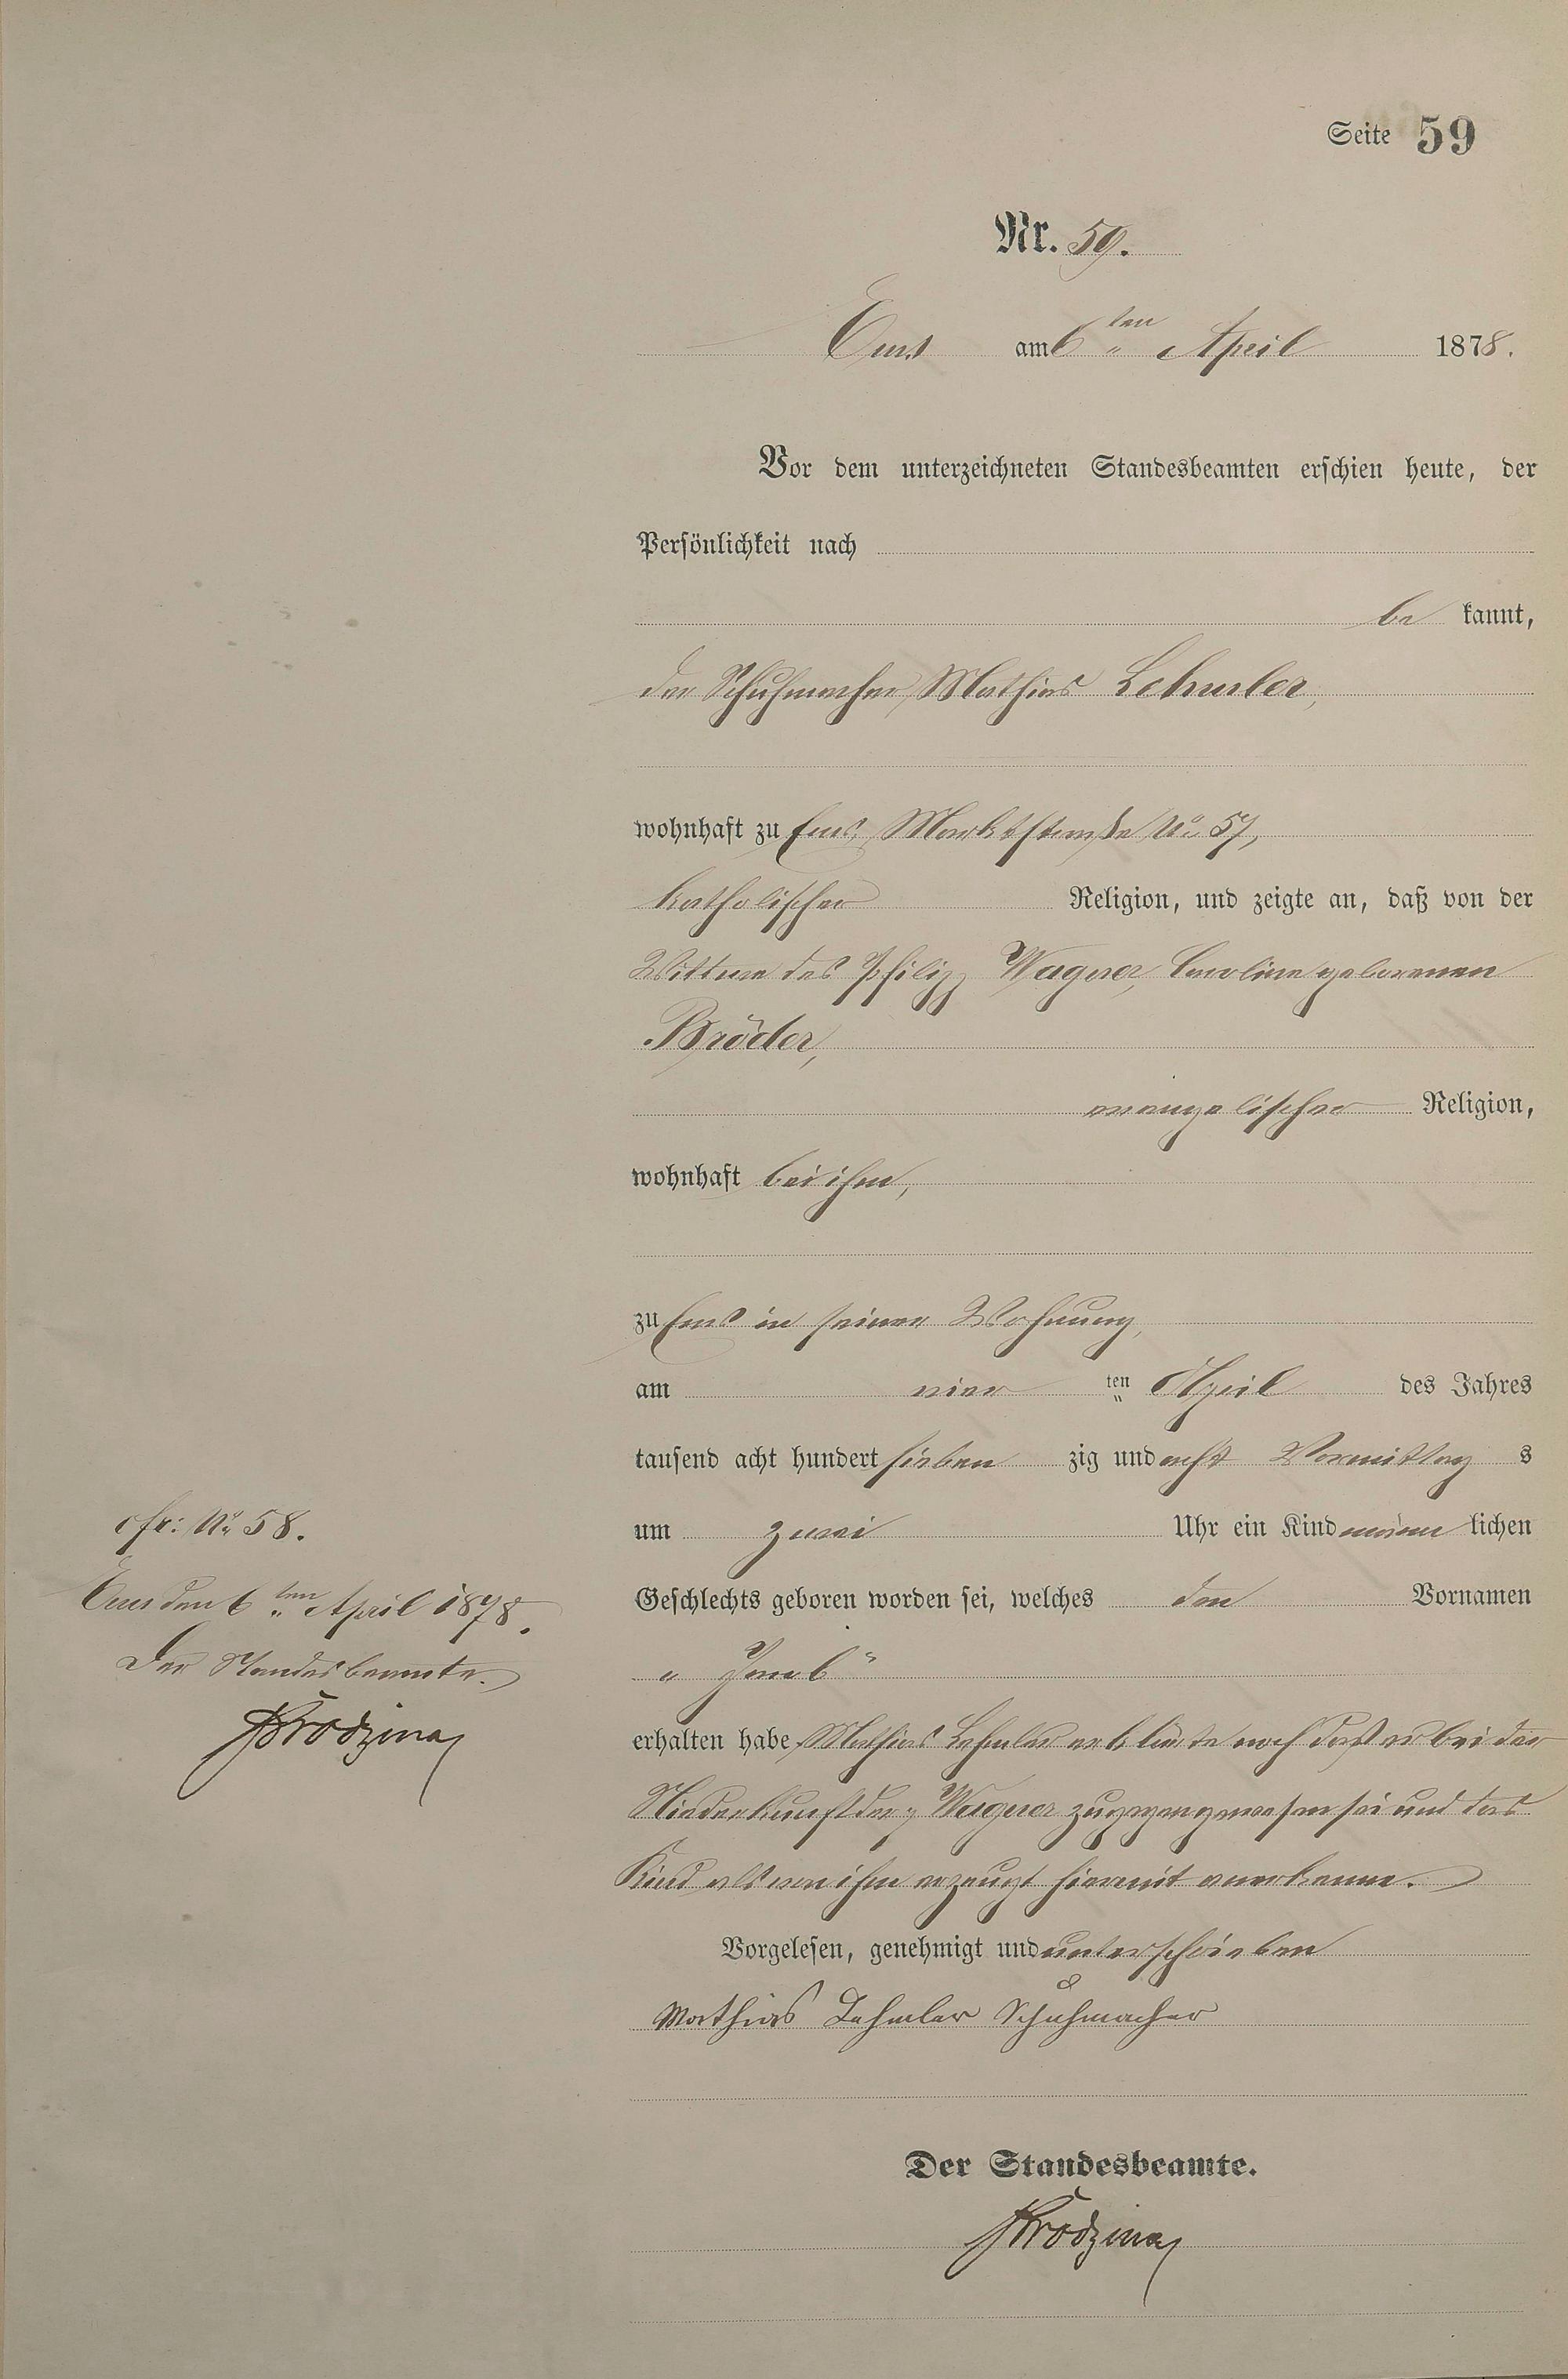 Seite 59
Nr. 59.
Ems am 6ten April 1878.
Vor dem unterzeichneten Standesbeamten erschien heute, der
Persönlichkeit nach
be kannt,
der Schuhmacher Mathias Lehmler,
wohnhaft zu Ems, Marktstraße No 57,
katholischer Religion, und zeigte an, daß von der
Wittwe des Philipp Wagner, Caroline geborenen
Bröder,
evangelischer Religion,
wohnhaft bei ihm,
zu Ems in seiner Wohnung,
am vier ten April des Jahres
tausend acht hundert sieben zig und acht Vormittag s
um zwei Uhr ein Kind männ lichen
Geschlechts geboren worden sei, welches den Vornamen
erhalten habe, Mathias Lehmler erklärte noch daß er bei der
Niederkunft der p Wagner zugegen gewesen sei und das
Kind als von ihm erzeugt hiermit anerkenne.
Vorgelesen, genehmigt und unterschrieben
Mathias Lehmler Schuhmacher
Der Standesbeamte.
cfr: No 58.
Ems den 6ten April 1878.
Der Standesbeamte.